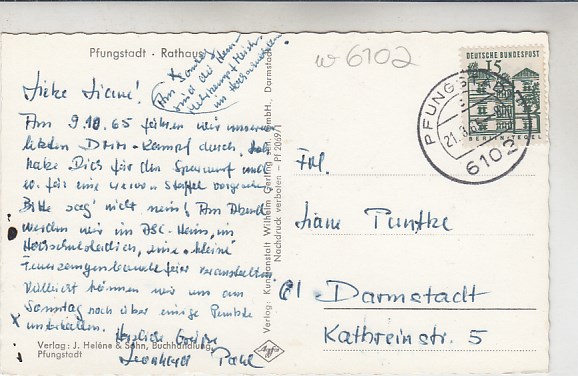 Pfungstadt - Rathaus
w 6102
DEUTSCHE BUNDESPOST
15
PFUNGSTADT
6102
Am Sonntag
sind die
Liebe Liane!
Am 9.10.65 führen wir unseren
letzten DMM-Kampf durch. Ich
habe Dich für den Speerwurf und
für eine Staffel vorgesehen
Bitte sag' nicht nein! Am Abend
werden wir im ASC-Heim, im
Hochschulstadion, eine "kleine"
veranstalten
Vielleicht können wir uns am
Sonntag noch über einige Punkte
unterhalten.
Herzliche Grüße
Verlag: J. Helène & Sohn, Buchhandlung,
Pfungstadt
Verlag: Kunstanstalt Wilhelm Gerling GmbH., Darmstadt
Nachdruck verboten - Pf 2069/1
Agfa
Frl.
Liane Puntke
61 Darmstadt
Kathreinstr. 5